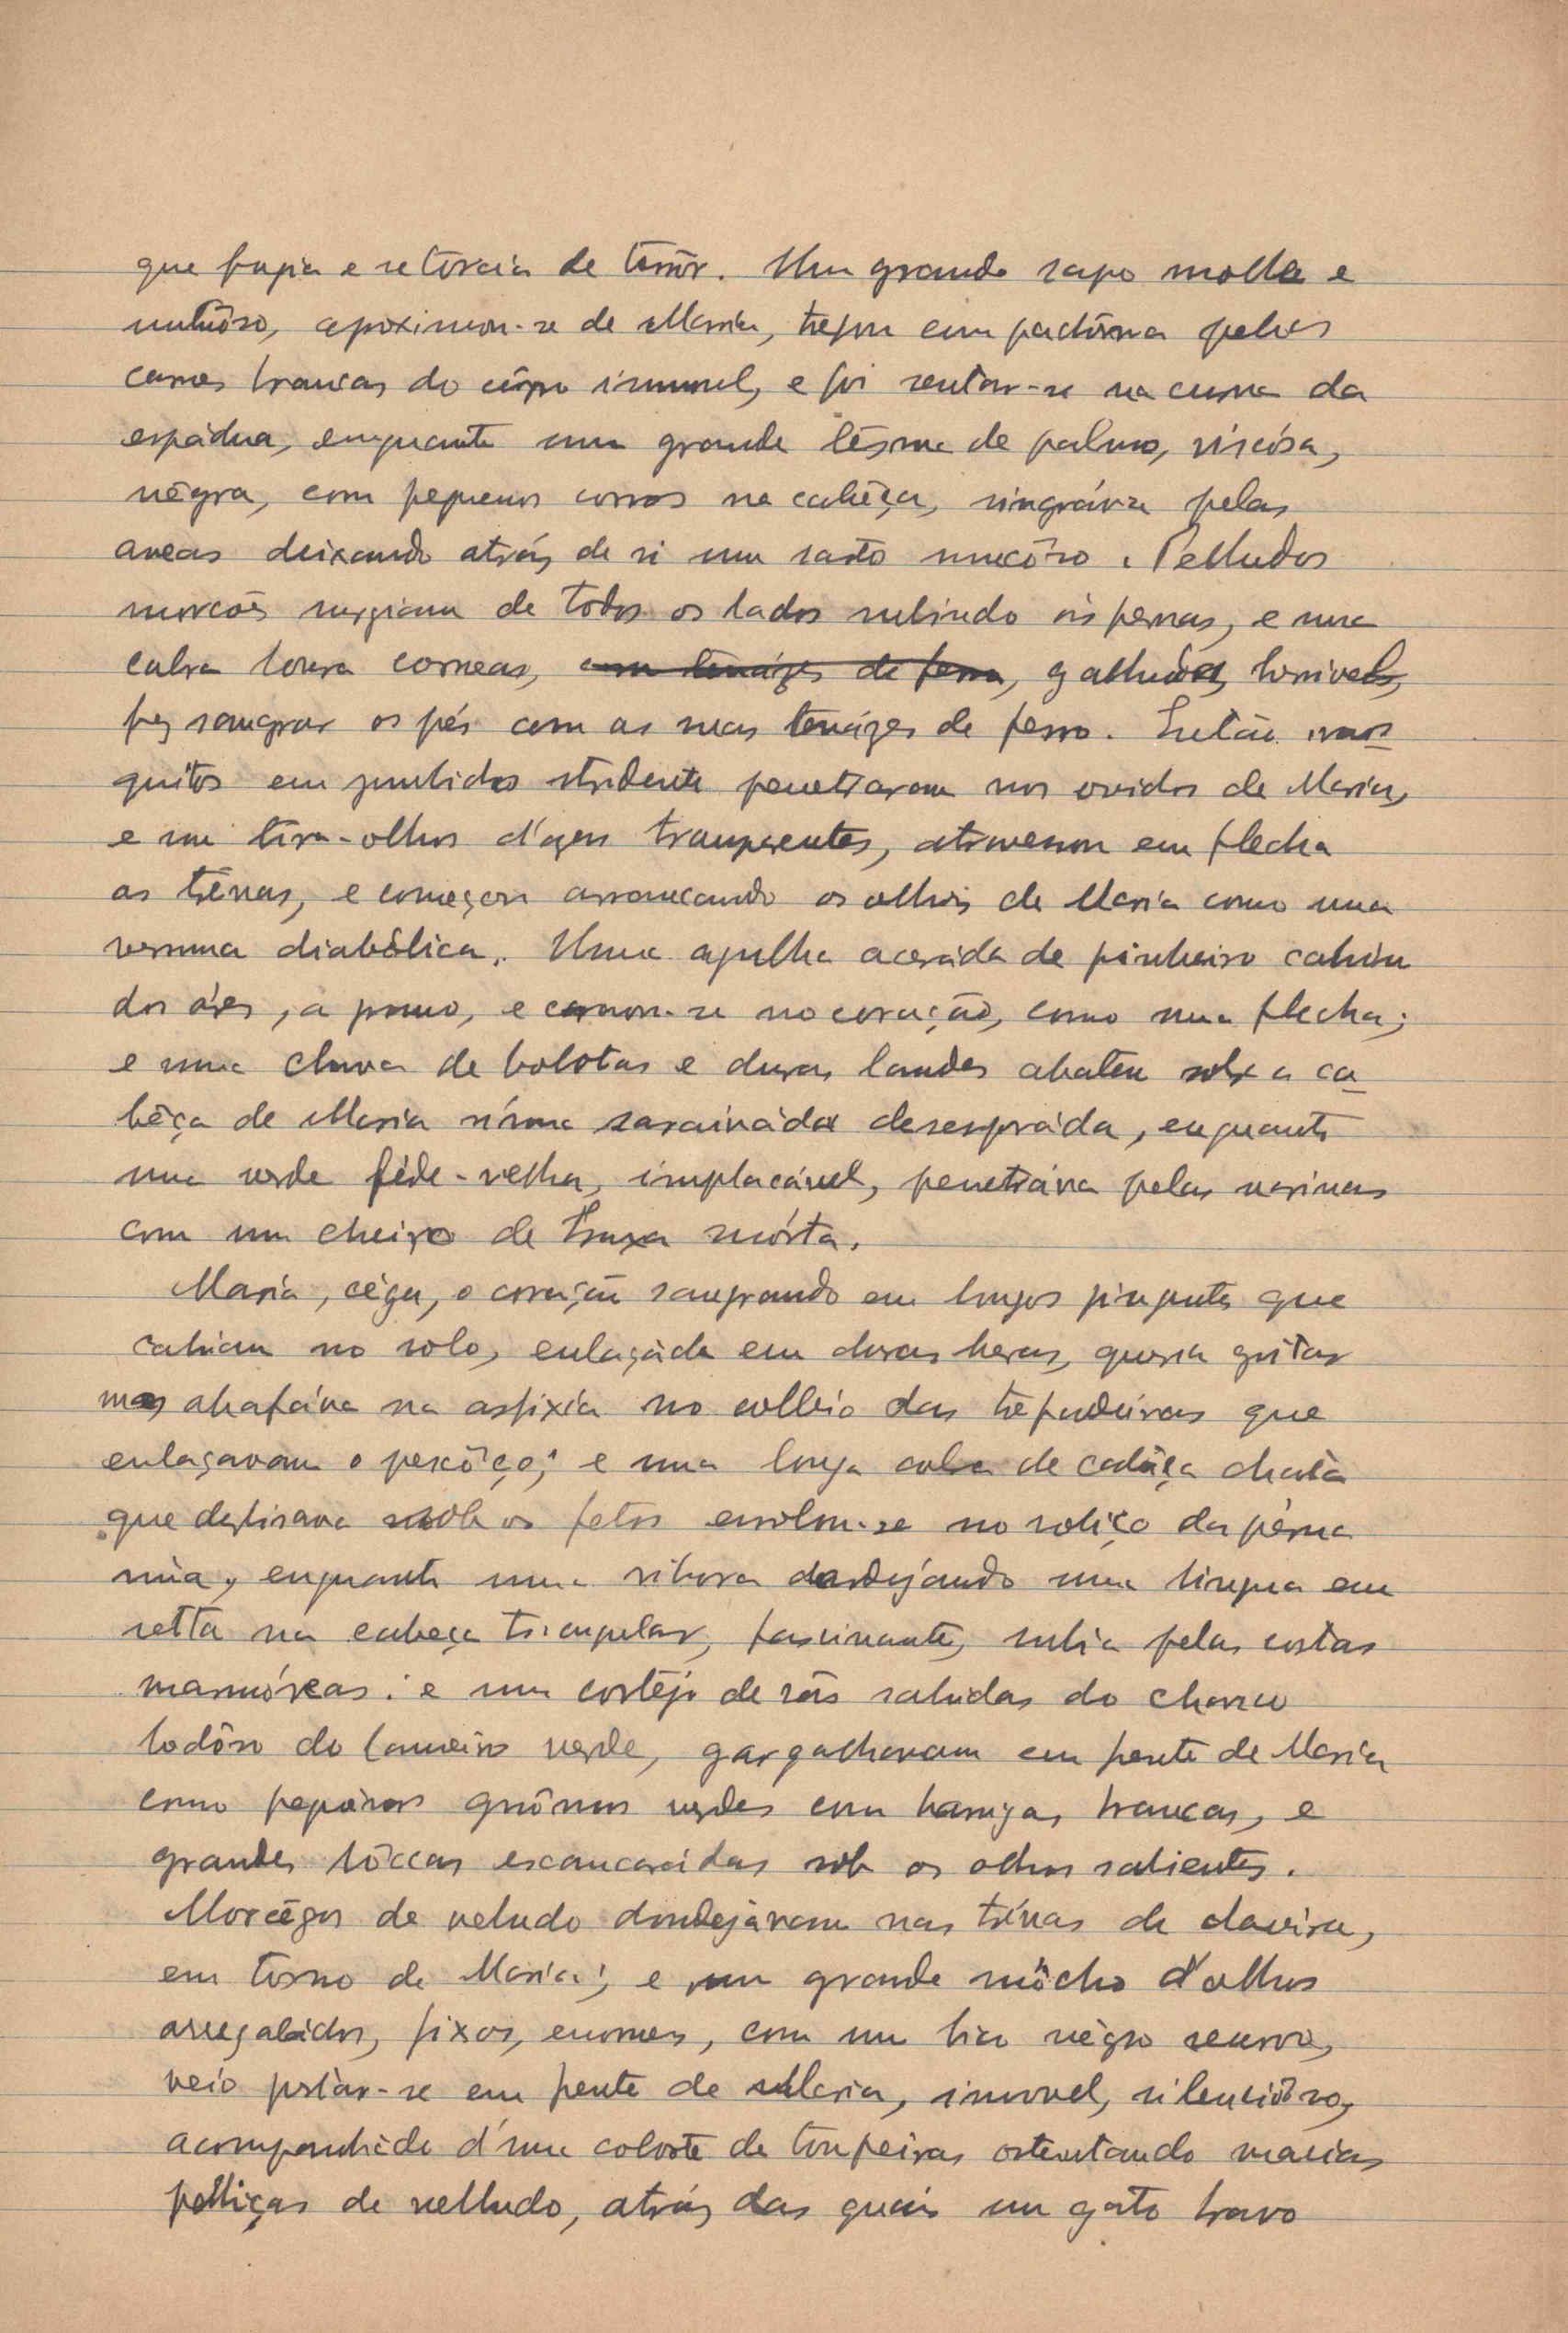 que fugia e se torcia de terrôr. Um grande sapo molle e
aproximou-se de Maria, trepou em pelas
carnes brancas do côrpo immovel, e foi sentar-se na curva da
espádua, enquanto uma grande lêsma de palmo, viscósa,
négra, com pequenos cornos na cabêça, singráva pelas
areas deixando atrás de si um rasto mucôso. Pelludos
surgiam de todos os lados subindo ás pernas, e uma
cabra loura corneas, com tenázes de ferro, galhuda, horrivel,
fez sangrar os pés com as suas tenázes de ferro. Então mos-
quitos em zumbidos stridente penetraram nos ouvidos de Maria,
e um tira-olhos d'azas transparentes, atravessou em flecha
as trévas, e começou arrancando os olhos de Maria como uma
verruma diabólica. Uma agulha aceráda de pinheiro cahiu
dos áres, a prumo, e cravou-se no coração, como uma flecha;
e uma chuva de bolotas e duras landes abateu sobre a ca-
bêça de Maria n'uma saraiváda desesperáda, enquanto
uma verde féde-velha, implacável, penetráva pelas narinas
com um cheiro de bruxa mórta.
Maria, céga, o coração sangrando em longos pingentes que
cahiam no solo, enlaçáda em duras heras, queria gritar
mas abafáva na asfixia no das trepadeiras que
enlaçavam o pescôço; e uma longa cobra de cabêça chata
que deslisava sob os fetos enrolou-se no roliço da pérna
núa, enquanto uma vibora dardejando uma lingua em
setta na cabeça triangular, fascinante, subia pelas costas
marmóreas: e um cortêjo de rãs sahidas do charco
lodôso do lameiro verde, gargalhavam em frente de Maria
como pequenos gnômos verdes com barrigas brancas, e
grandes bôccas escancarádas sob os olhos salientes.
Morcêgos de veludo doudejávam nas trévas da clareira,
em torno de Maria; e um grande môcho d'olhos
arregaládos, fixos, enormes, com um bico négro recurvo,
veio postár-se em frente de Maria, immovel, silenciôso,
acompanhádo d'uma cohorte de toupeiras ostentando macias
pelliças de velludo, atrás das quáis um gato bravo